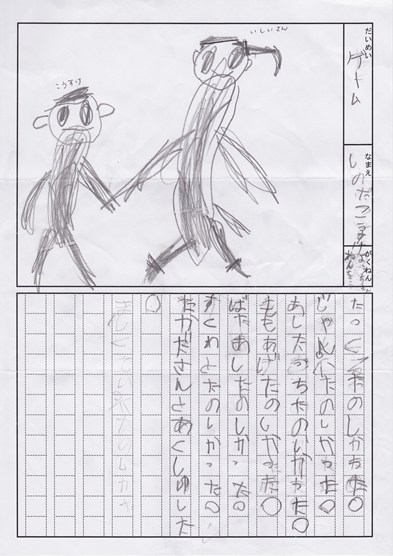 だいめい
ゲーム
なまえ
いのだこうすけ
がくねん
ねんせい
こうすけ
いしいさん
たっくるたのしかった。
じゃんけんたのしかった。
あしたっちたのしかった。
ももあげたのしかった。
ばたあしたのしかった。
すくわとたのしかった。
たかださんとあくしゅした
。